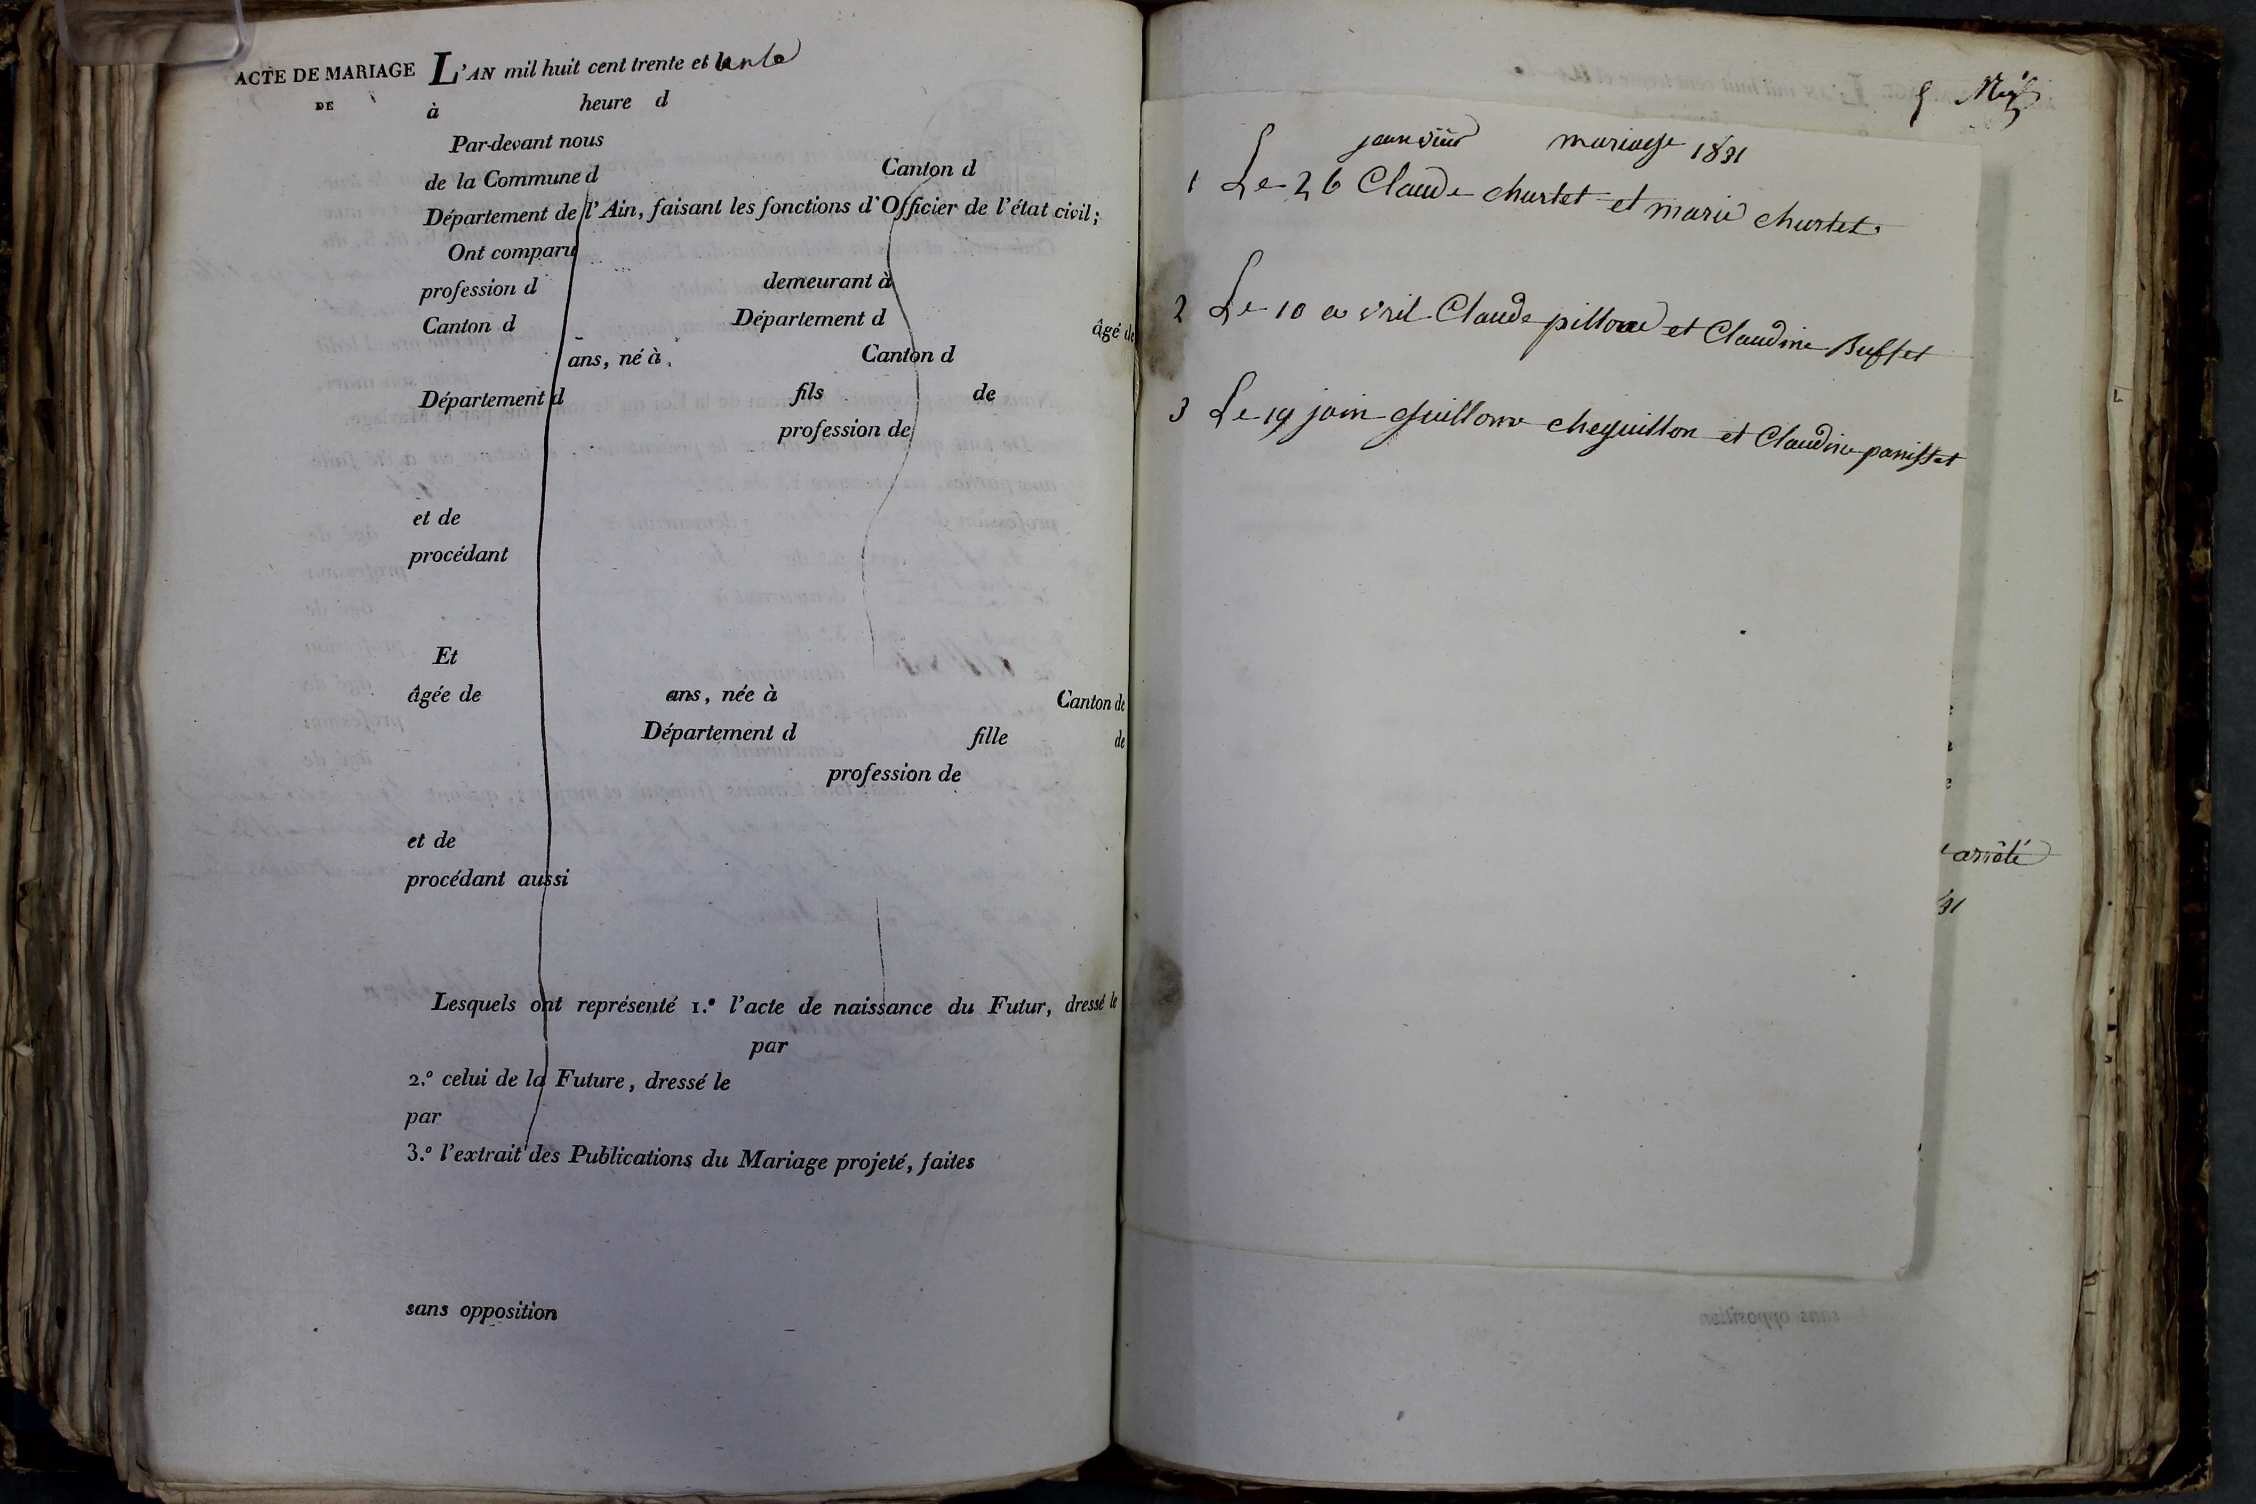 ACTE DE MARIAGE
DE
L'AN mil huit cent trente et
à heure d
Par-devant nous
de la Commune d Canton d
Département de l'Ain, faisant les fonctions d'Officier de l'état civil;
Ont comparu
profession d demeurant à
Canton d Département d âgé de
ans, né à Canton d
Département d fils de
profession de
et de
procédant
Et
âgée de ans, née à Canton de
Département d fille de
profession de
et de
procédant aussi
Lesquels ont représenté 1.º l'acte de naissance du Futur, dressé le
par
2.º celui de la Future, dressé le
par
3.º l'extrait des Publications du Mariage projeté, faites
sans opposition
janvier mariage 1831
1 Le 26 Claude churlet et marie churlet.
2 Le 10 avril Claude pilloud et Claudine Buffet
3 Le 19 join guillome cheguillon et Claudine panisset
arrêté
31
sans opposition